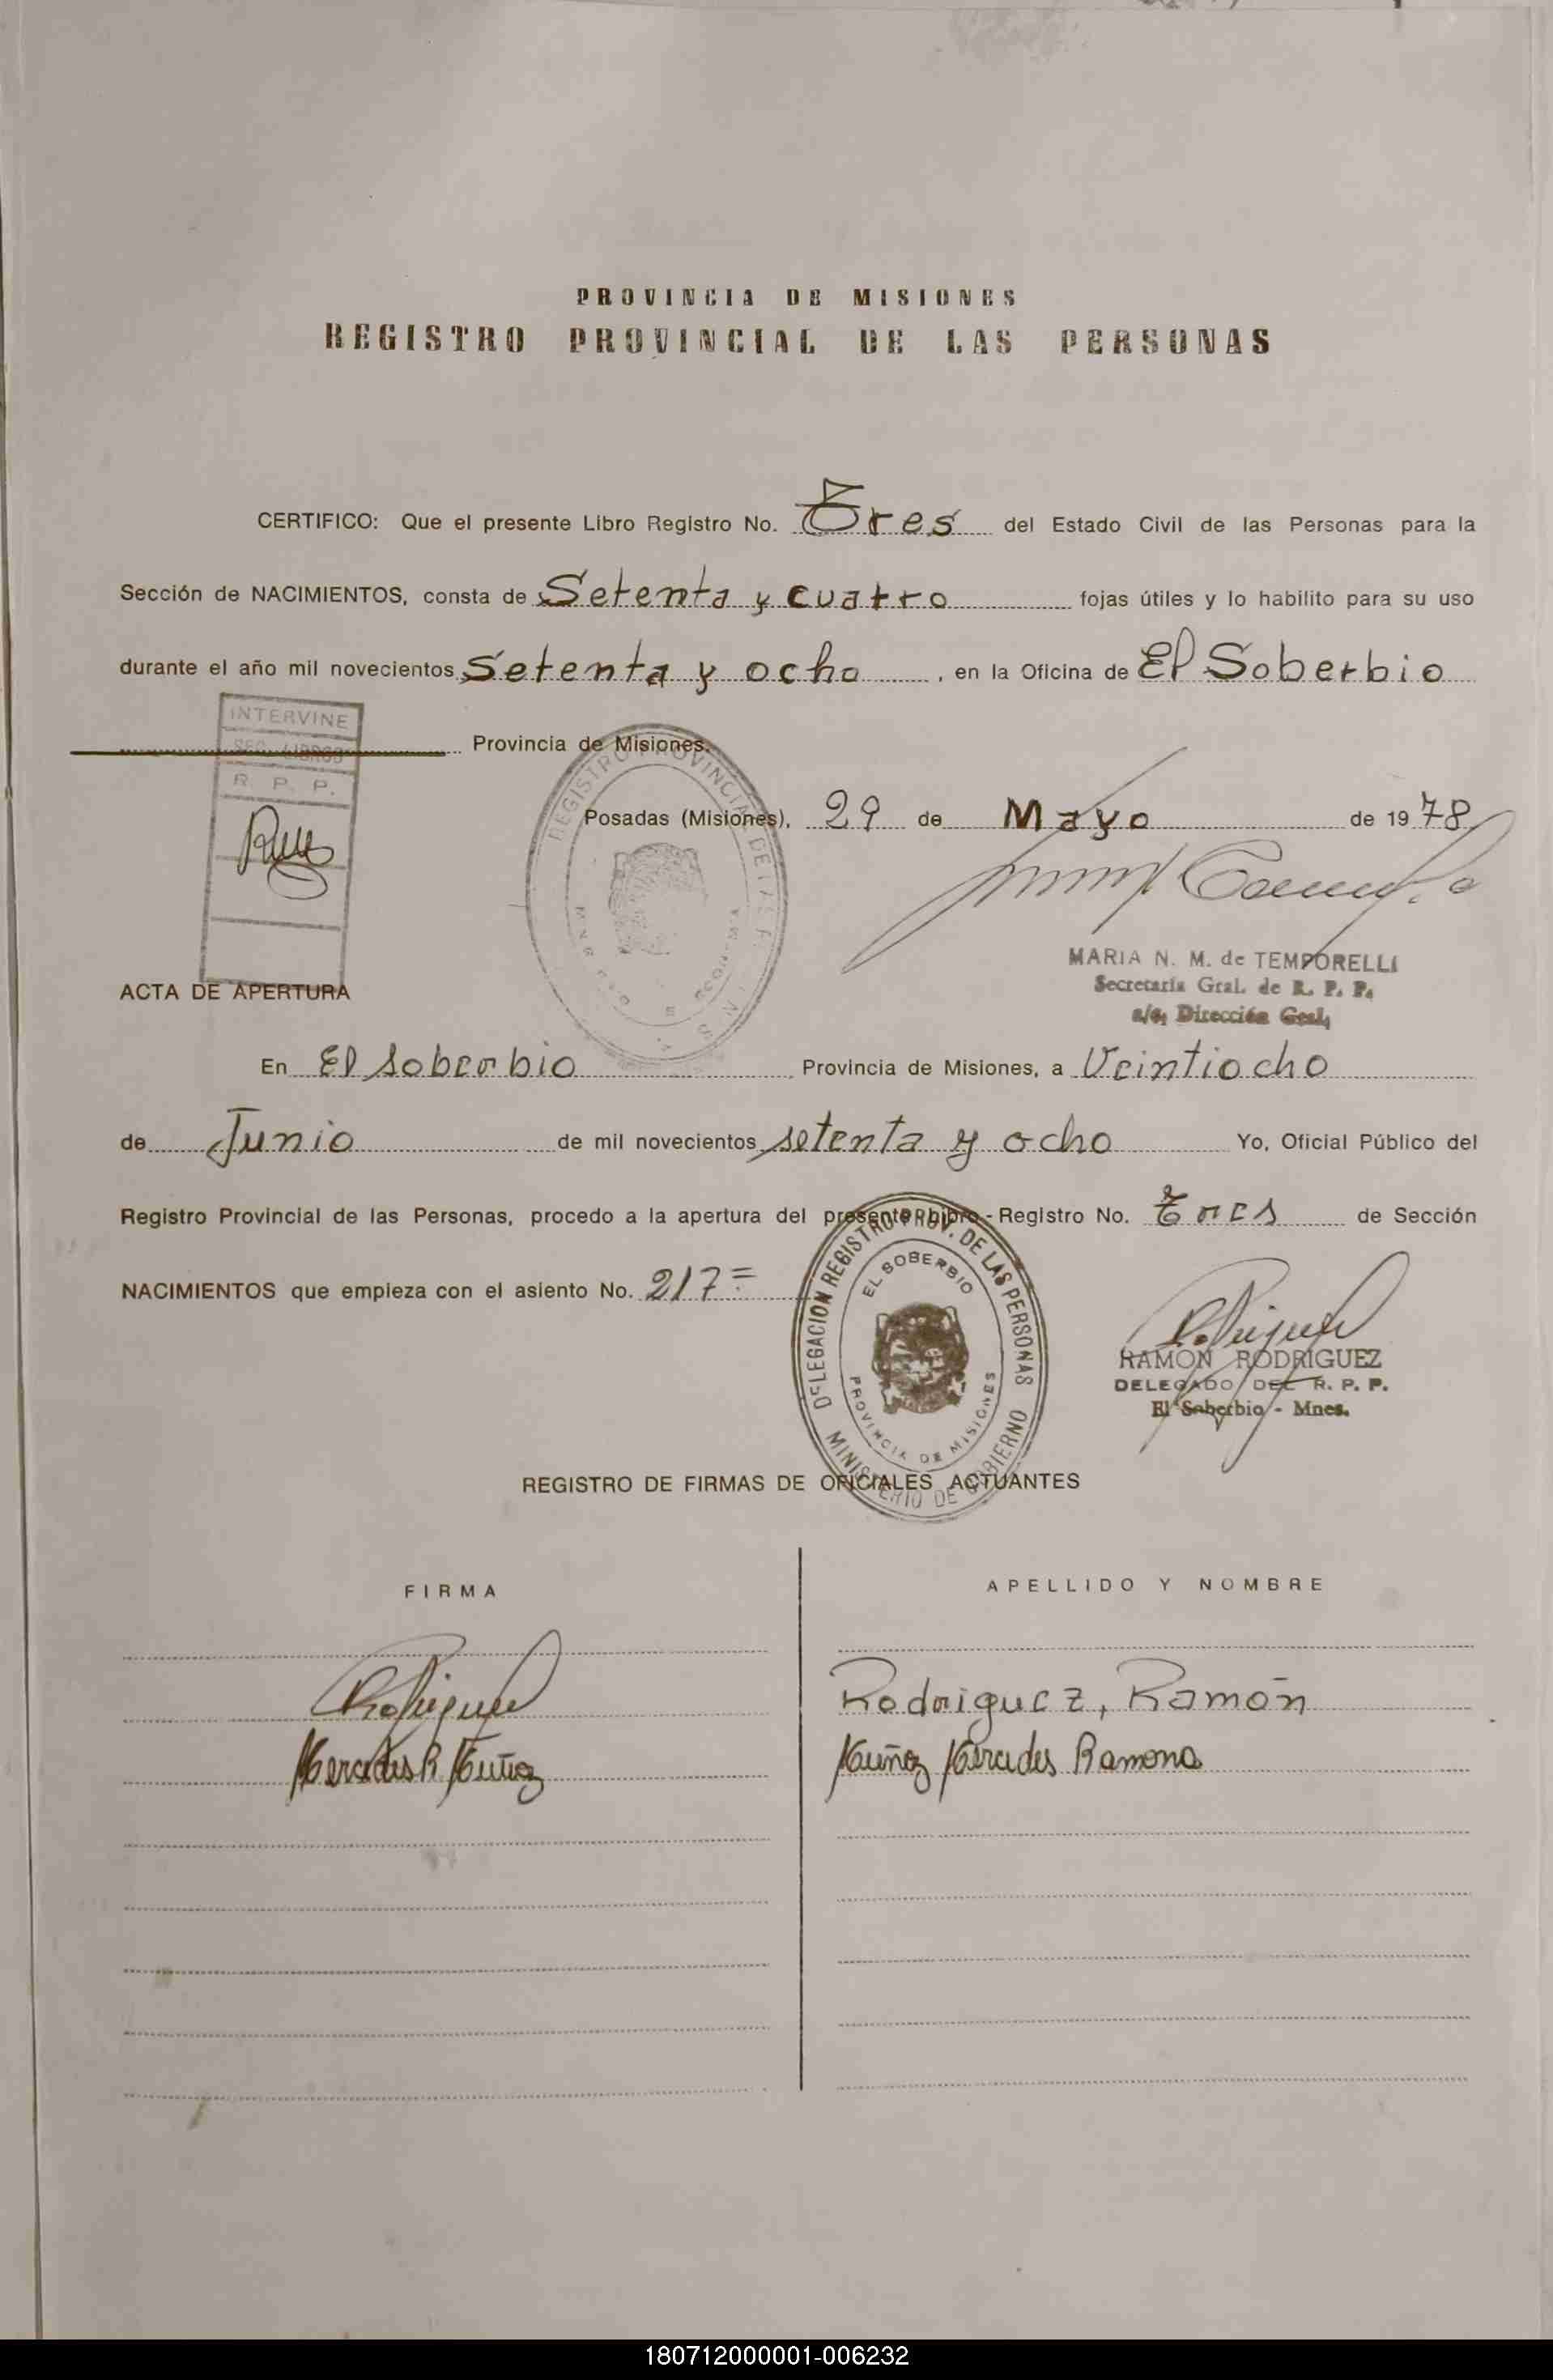 PROVINCIA DE MISIONES
REGISTRO PROVINCIAL DE LAS PERSONAS
CERTIFICO: Que el presente Libro Registro No. Tres del Estado Civil de las Personas para la
Sección de NACIMIENTOS, consta de Setenta y cuatro fojas útiles y lo habilito para su uso
durante el año mil novecientos Setenta y ocho, en la Oficina de El Soberbio
Provincia de Misiones.
INTERVINE
SEC. LIBROS
R. P. P.
REGISTRO PROVINCIAL DE LAS
Posadas (Misiones), 29 de Mayo de 1978
MARIA N. M. de TEMPORELLI
Secretaria Gral. de R. P. P.
a/c. Dirección Gral.
ACTA DE APERTURA
En El Soberbio Provincia de Misiones, a Veintiocho
de Junio de mil novecientos setenta y ocho Yo, Oficial Público del
Registro Provincial de las Personas, procedo a la apertura del presente Libro - Registro No. Tres de Sección
NACIMIENTOS que empieza con el asiento No. 217=
DELEGACION REGISTRO PROV. DE LAS PERSONAS
EL SOBERBIO
PROVINCIA DE MISIONES
MINISTERIO DE GOBIERNO
Rodriguez
RAMON RODRIGUEZ
DELEGADO DEL R. P. P.
El Soberbio - Mnes.
REGISTRO DE FIRMAS DE OFICIALES ACTUANTES
FIRMA APELLIDO Y NOMBRE
Rodriguez Rodriguez, Ramón
Mercedes R Muñoz Muñoz Mercedes Ramona
180712000001-006232